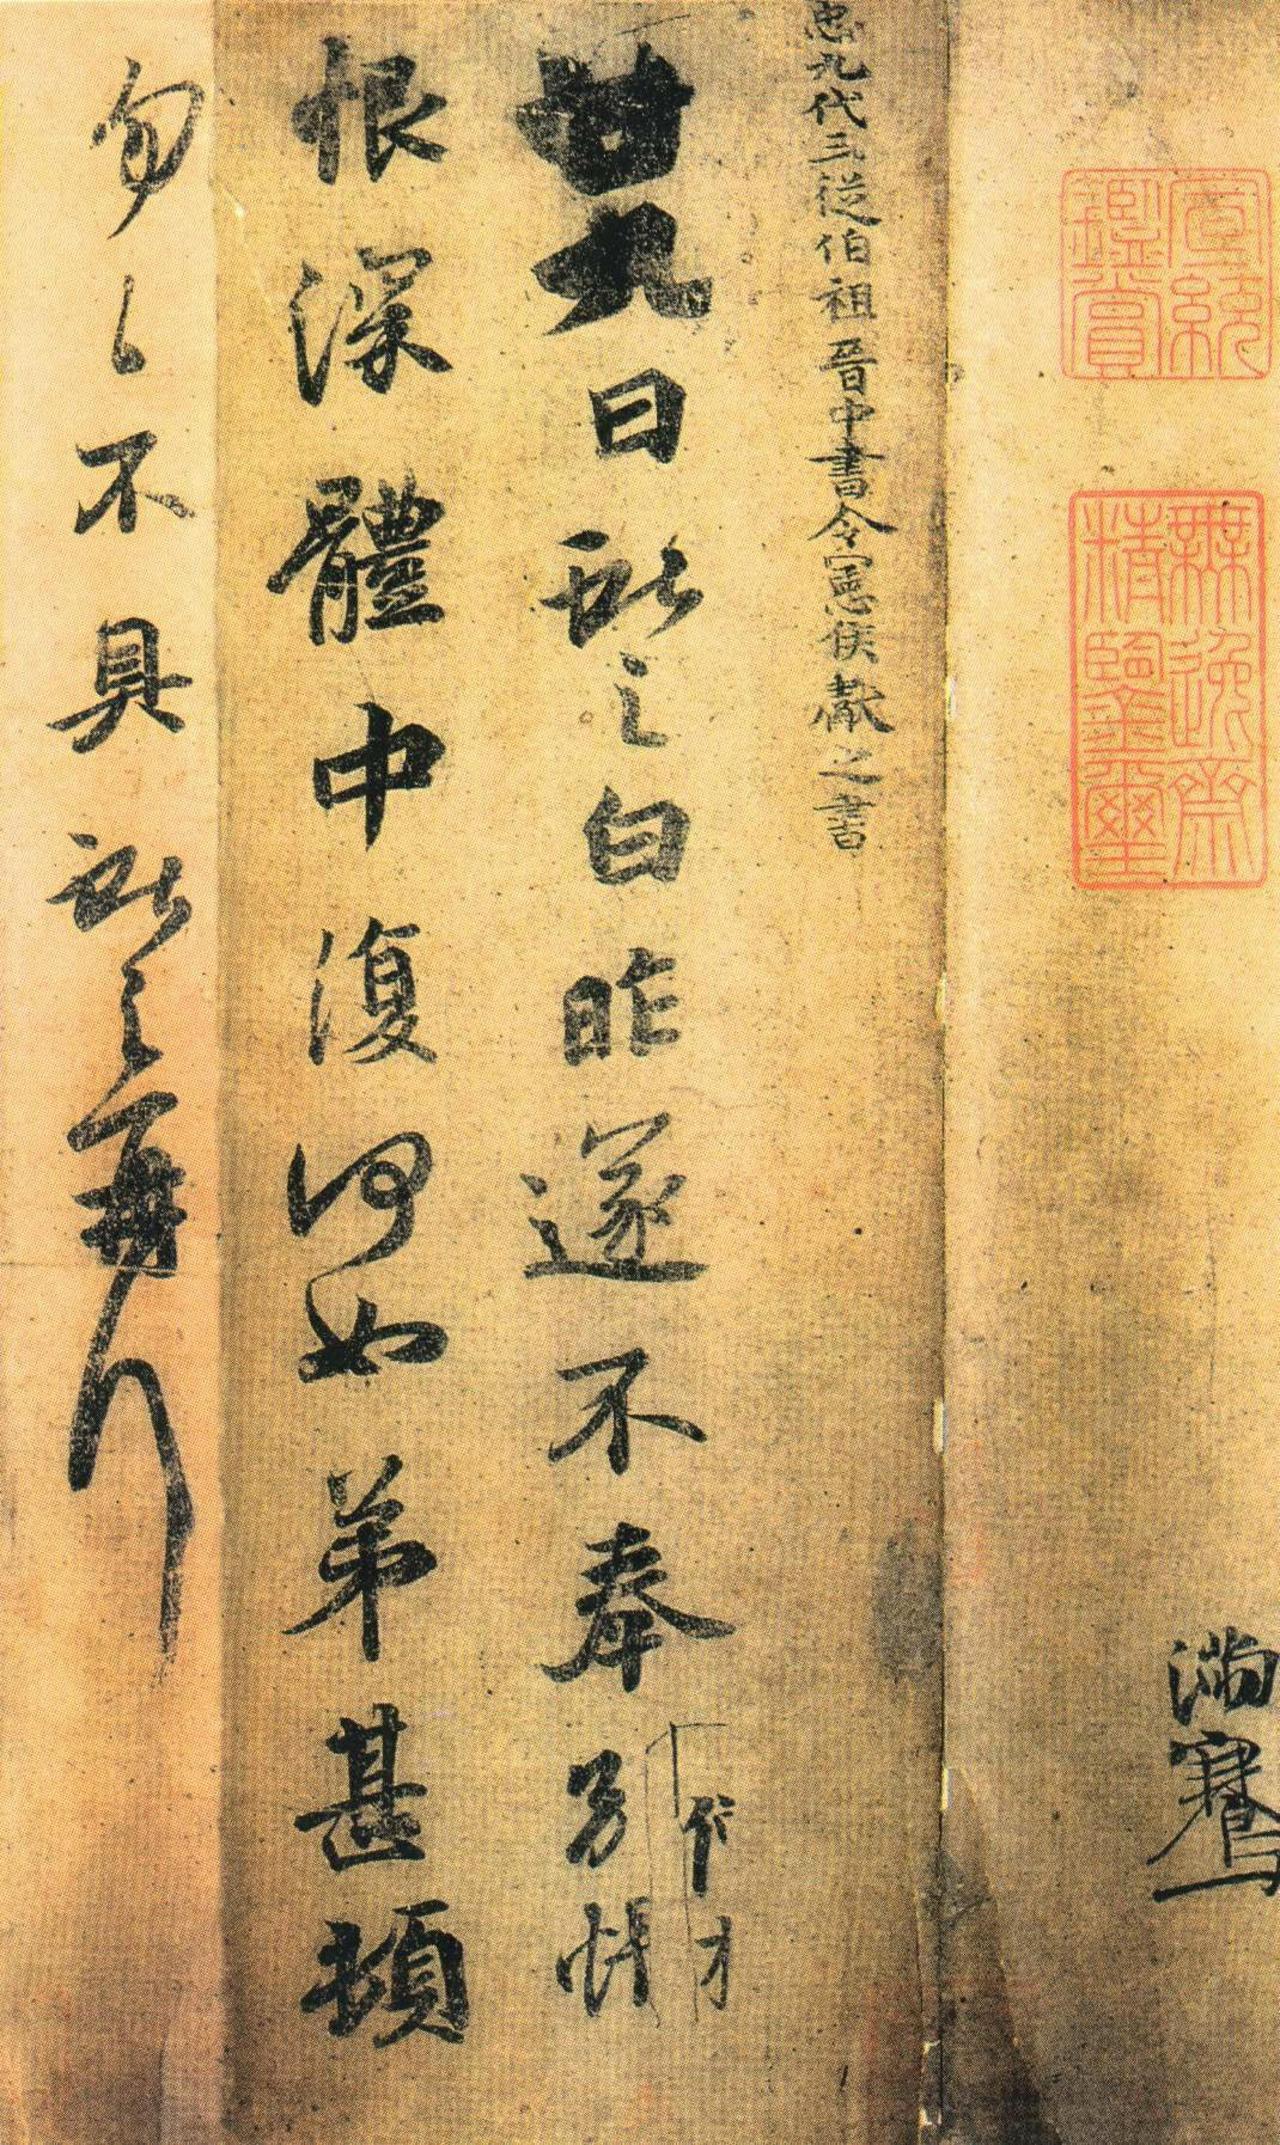 宣統鑒賞
無逸齋精鑒璽
臣九代三從伯祖晉中書令憲侯獻之書
廿九日獻之白昨遂不奉別悵
恨深體中復何如弟甚頓
匆匆不具獻之再拜